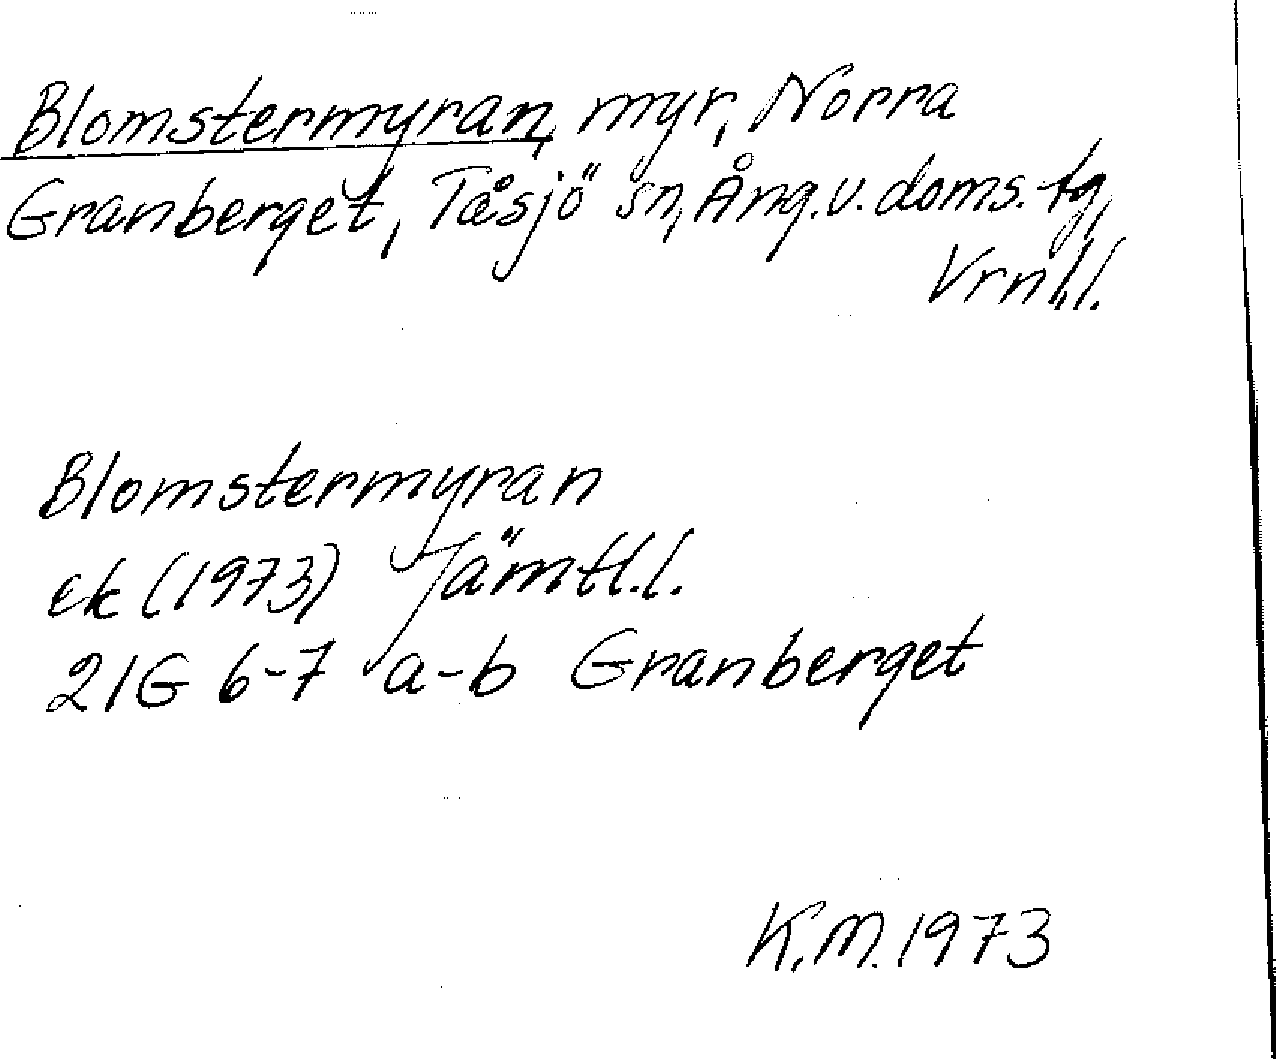 Blomstermyran, myr, Norra
Granberget, Tåsjö sn, Ång.v.doms.tg,
Vrnl.l.
Blomstermyran
ek (1973) Jämtl.l.
21G 6-7 a-b Granberget
K.M. 1973